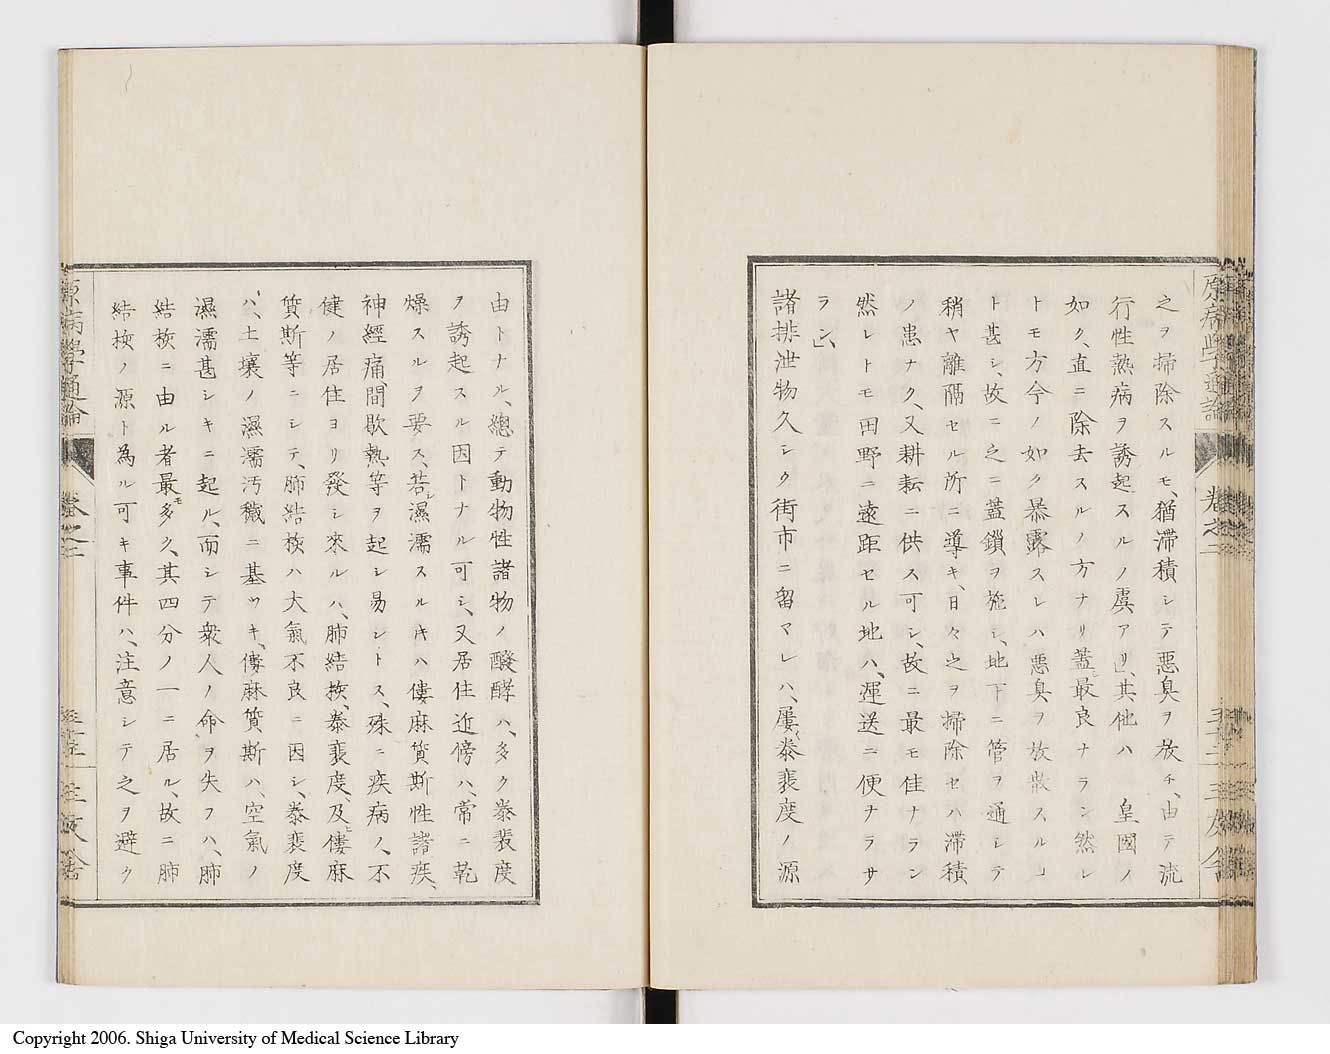 之ヲ掃除スルモ、猶滞積シテ悪臭ヲ放チ、由テ流
行性熱病ヲ誘起スルノ虞アリ」、其他ハ 皇國ノ
如ク、直ニ除去スルノ方ナリ蓋シ最良ナラン然レ
トモ方今ノ如ク暴露スレハ悪臭ヲ放散スルヿ
ト甚シ、故ニ之ニ蓋鎖ヲ施シ、地下ニ管ヲ通シテ
稍ヤ離隔セル所ニ導キ、日々之ヲ掃除セハ滞積
ノ患ナク、又耕耘ニ供ス可シ、故ニ最モ佳ナラン
然レトモ田野ニ遠距セル地ハ、運送ニ便ナラサ
ラン」、
諸排泄物久シク街市ニ留マレハ、屢〻泰裴度ノ源
由トナル、總テ動物性諸物ノ醗酵ハ、多ク泰裴度
ヲ誘起スル因トナル可シ、又居住近傍ハ、常ニ乾
燥スルヲ要ス、若シ濕濡スルキハ僂麻質斯性諸疾、
神經痛、間歇熱等ヲ起シ易シトス、殊ニ疾病ノ、不
健ノ居住ヨリ發シ來ルハ、肺結核、泰裴度、及ヒ僂麻
質斯等ニシテ、肺結核ハ大氣不良ニ因シ、泰裴度
ハ、土壤ノ濕濡汚穢ニ基ツキ、僂麻質斯ハ、空氣ノ
濕濡甚シキニ起ル、而シテ衆人ノ命ヲ失フハ、肺
結核ニ由ル者最モ多ク、其四分ノ一ニ居ル、故ニ肺
結核ノ源ト為ル可キ事件ハ、注意シテ之ヲ避ク
原病學通論
卷之二
三友舍
原病學通論
卷之二
三友舍
Copyright 2006. Shiga University of Medical Science Library